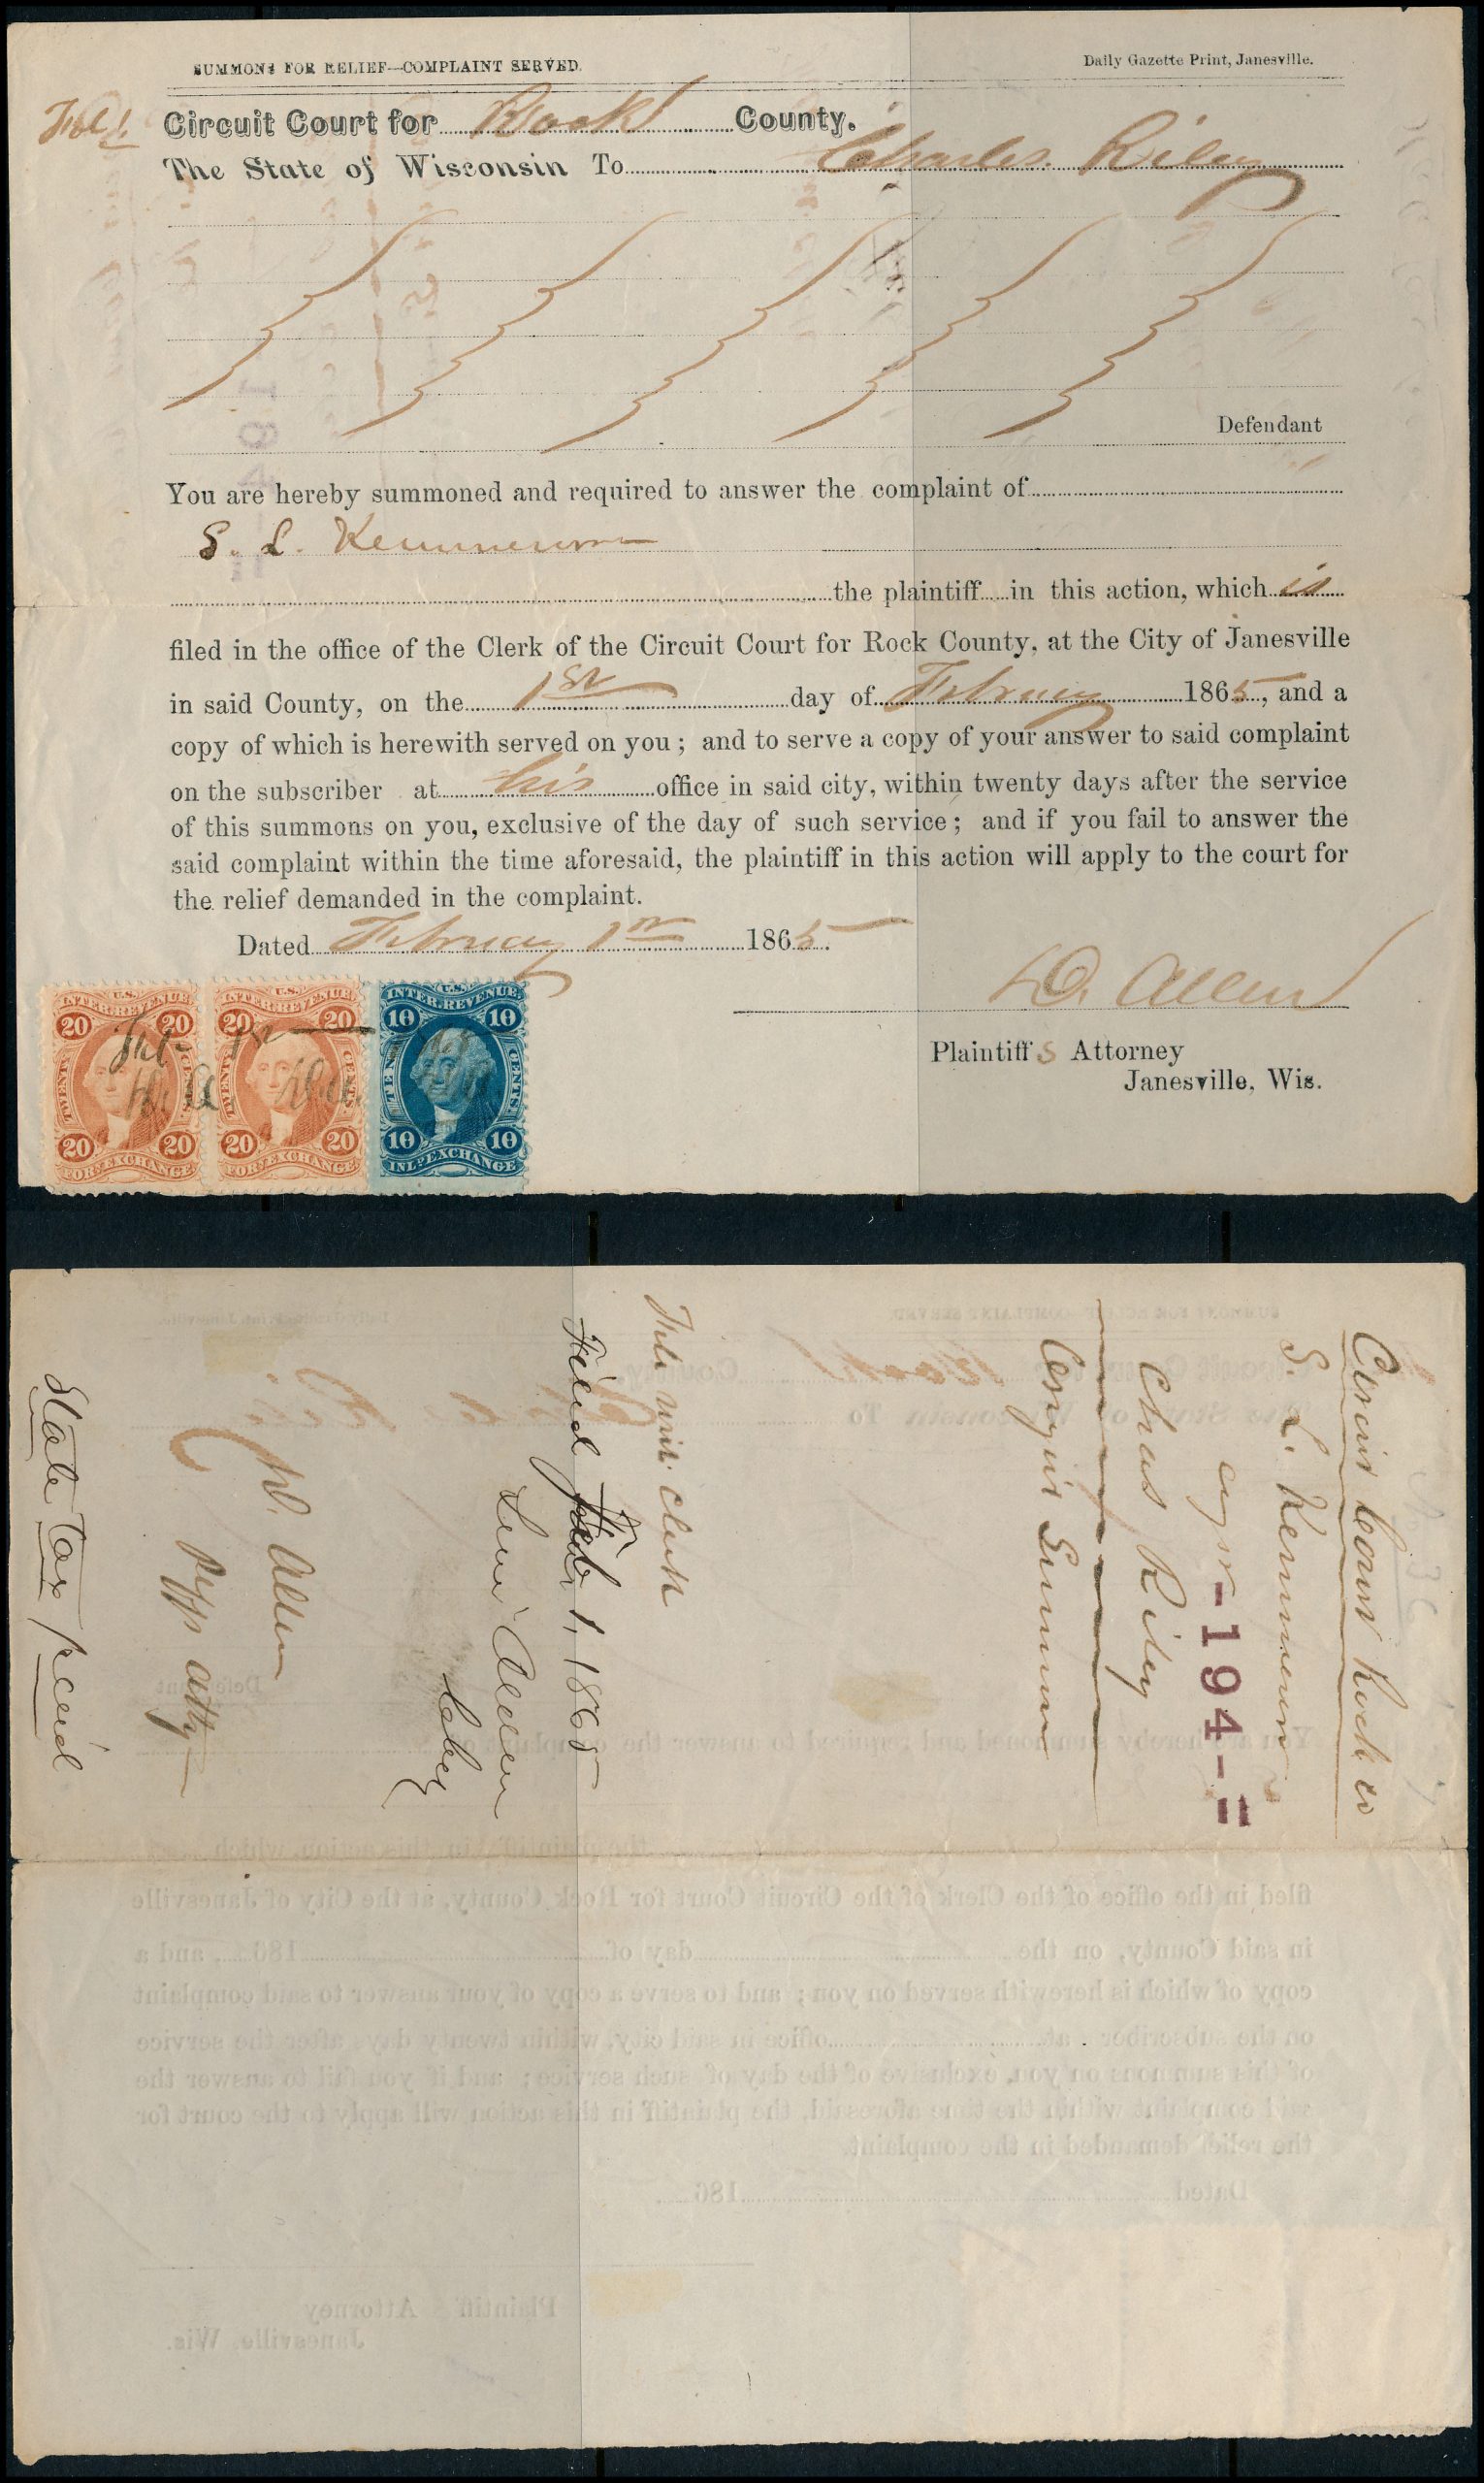 SUMMONS FOR RELIEF—COMPLAINT SERVED.
Daily Gazette Print, Janesville.
Circuit Court for Rock County.
The State of Wisconsin To Charles Riley
Defendant
You are hereby summoned and required to answer the complaint of
S. L.
the plaintiff in this action, which is
filed in the office of the Clerk of the Circuit Court for Rock County, at the City of Janesville
in said County, on the 1st day of February 1865, and a
copy of which is herewith served on you; and to serve a copy of your answer to said complaint
on the subscriber at his office in said city, within twenty days after the service
of this summons on you, exclusive of the day of such service; and if you fail to answer the
said complaint within the time aforesaid, the plaintiff in this action will apply to the court for
the relief demanded in the complaint.
Dated February 1st 1865.
Allen
Plaintiffs Attorney
Janesville, Wis.
U.S.
INTER. REVENUE
20 20
TWENTY CENTS
20 20
FOR. EXCHANGE
U.S.
INTER. REVENUE
20 20
TWENTY CENTS
20 20
FOR. EXCHANGE
U.S.
INTER. REVENUE
10 10
TEN CENTS
10 10
INL'D EXCHANGE
Circuit Court Rock co
S. L.
agst
-194-=
Chas Riley
Clerk
Filed Feb. 1, 1865
Levi Alden
Clerk
Allen
Plffs atty
State Tax paid